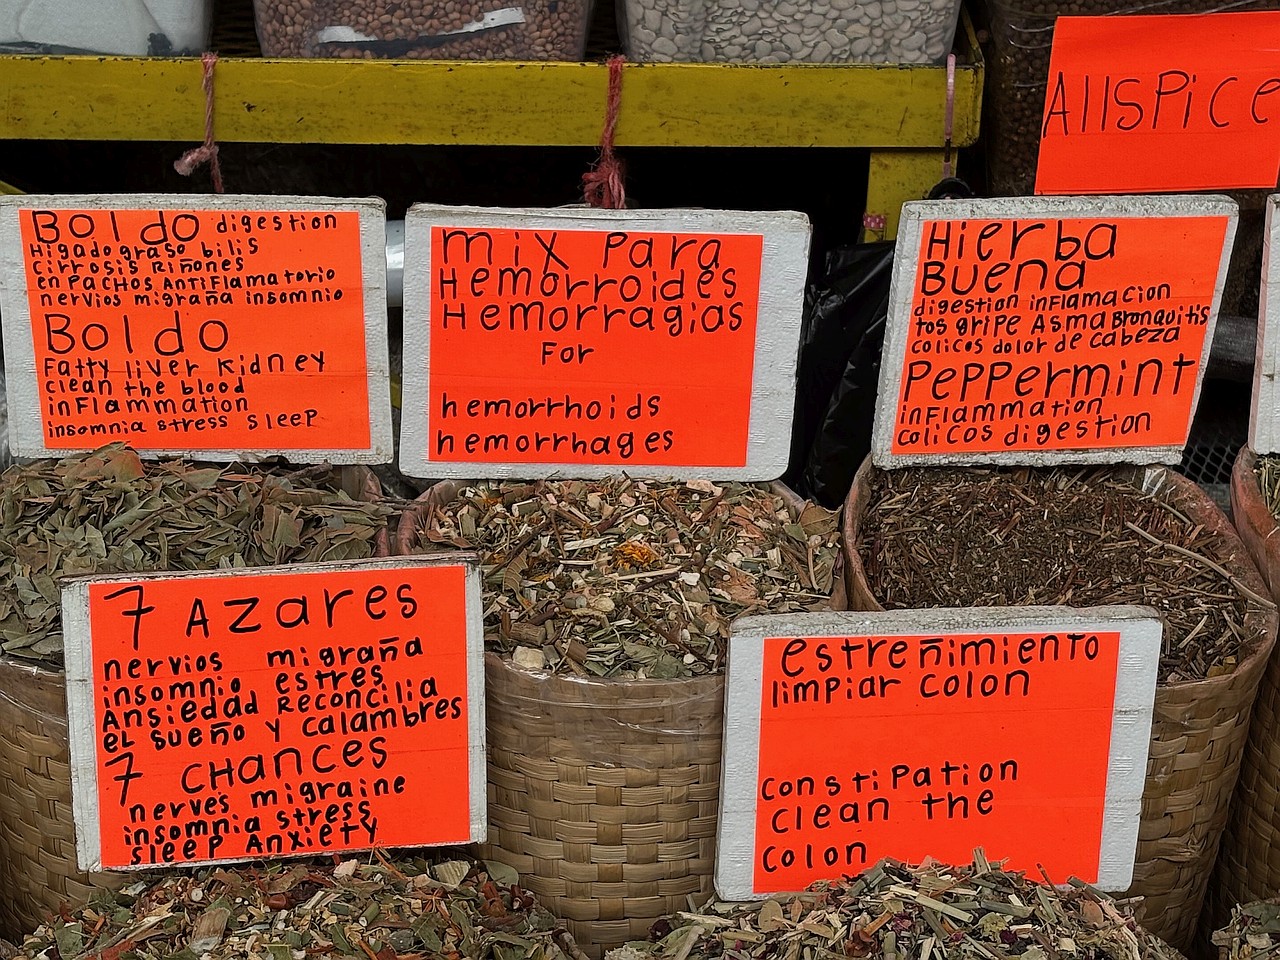 Allspice
Boldo digestion
Higado graso bilis
cirrosis Riñones
enpachos Antiflamatorio
nervios migraña insomnio
Boldo
Fatty liver kidney
clean the blood
inflammation
insomnia stress sleep
mix Para
Hemorroides
Hemorragias
For
hemorrhoids
hemorrhages
Hierba
Buena
digestion inflamacion
tos gripe Asma Bronquitis
colicos dolor de cabeza
Peppermint
inflammation
colicos digestion
7 Azares
nervios migraña
insomnio estres
Ansiedad Reconcilia
el sueño y calambres
7 Chances
nerves migraine
insomnia stress
sleep Anxiety
estreñimiento
limpiar colon
constipation
clean the
colon